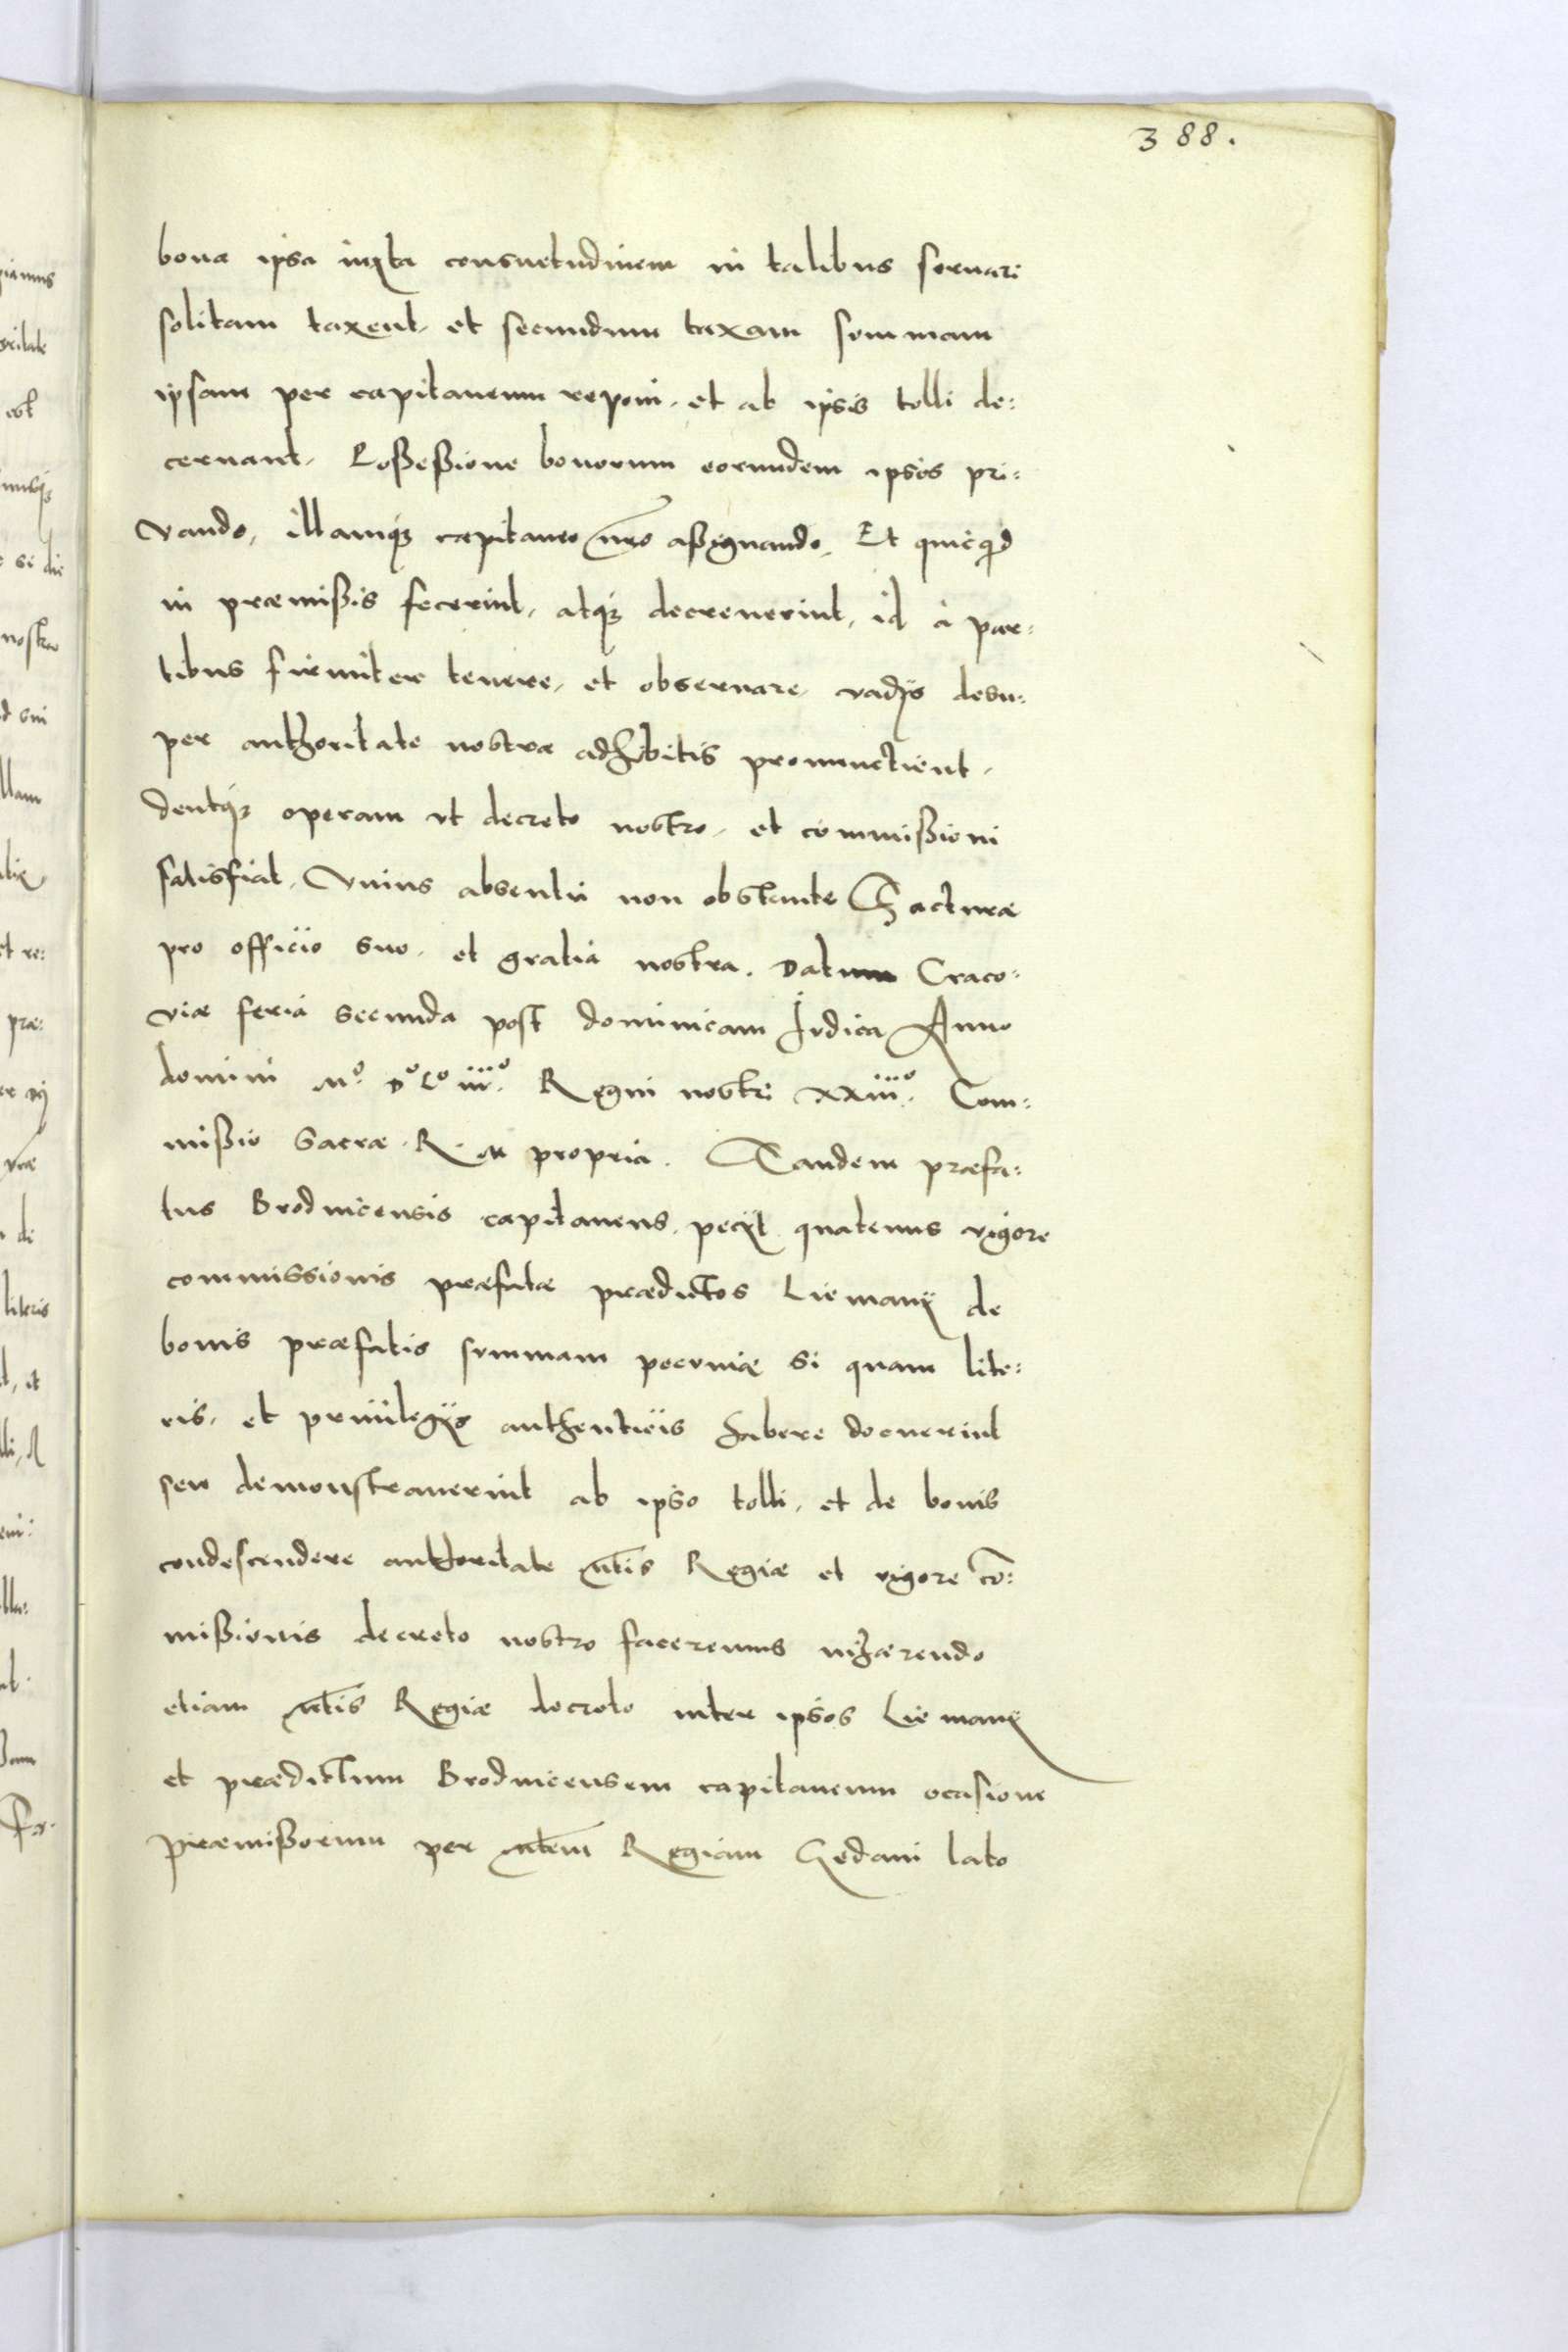 388.
bona ipsa iuxta consuetudinem in talibus seruari
solitam taxent, et secundum taxam summam
ipsam per capitaneum reponi, et ab ipsis tolli de:
cernant. Possessione bonorum eorundem ipsos pri:
vando, illamq; capitaneo nr̃o assignando, Et quicqd
in præmissis fecerint, atq; decreuerint, id à par:
tibus firmiter tenere, et obseruare, vadijs desu:
per authoritate nostra adhibitis pronunctient,
dentq; operam vt decreto nostro, et commissioni
satisfiat, Vnius absentia non obstante Facturæ
pro officio suo, et gratia nostra. Datum Craco:
viæ feria secunda post dominicam Iudica Anno
domini Mº. Dº Lº iiiº. Regni nostri XXiiiº. Com:
missio Sacræ . R. M propria. Tandem præfa:
tus Brodnicensis capitaneus, pecijt quatenus vigore
commissionis præfatæ prædictos Liemany de
bonis præfatis summam pecuniæ si quam lite:
ris, et priuilegijs authenticis habere docuerint
seu demonstrauerint ab ipso tolli, et de bonis
condescendere authoritate Mtis Regiæ et vigore cõ:
missionis decreto nostro faceremus inhærendo
etiam Mtis Regiæ decreto inter ipsos Liemany
et prædictum Brodnicensem capitaneum ocasione
præmissorum per Mtem Regiam Gedani lato